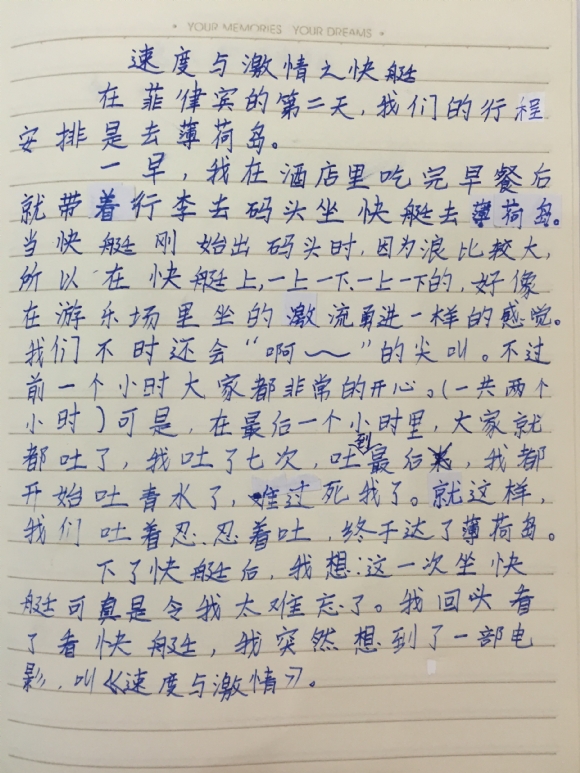 • YOUR MEMORIES YOUR DREAMS •
速度与激情之快艇
在菲律宾的第二天，我们的行程
安排是去薄荷岛。
一早，我在酒店里吃完早餐后
就带着行李去码头坐快艇去薄荷岛。
当快艇刚始出码头时，因为浪比较大，
所以在快艇上，一上一下、一上一下的，好像
在游乐场里坐的激流勇进一样的感觉。
我们不时还会“啊～”的尖叫。不过
前一个小时大家都非常的开心。（一共两个
小时）可是，在最后一个小时里，大家就
都吐了，我吐了七次，吐到最后，我都
开始吐青水了，难过死我了。就这样，
我们吐着忍、忍着吐，终于达了薄荷岛。
下了快艇后，我想：这一次坐快
艇可真是令我太难忘了。我回头看
了看快艇，我突然想到了一部电
影，叫《速度与激情》。